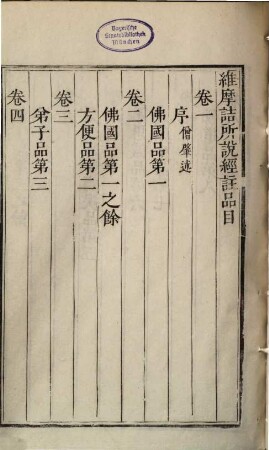 Bayerische
Staatsbibliothek
München
維摩詰所說經註品目
卷一
序僧肇述
佛國品第一
卷二
佛國品第一之餘
方便品第二
卷三
弟子品第三
卷四